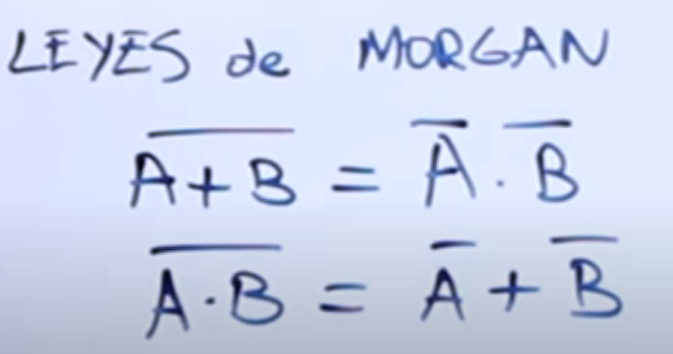 LEYES de MORGAN
A̅+̅B̅ = A̅ . B̅
A̅·̅B̅ = A̅ + B̅